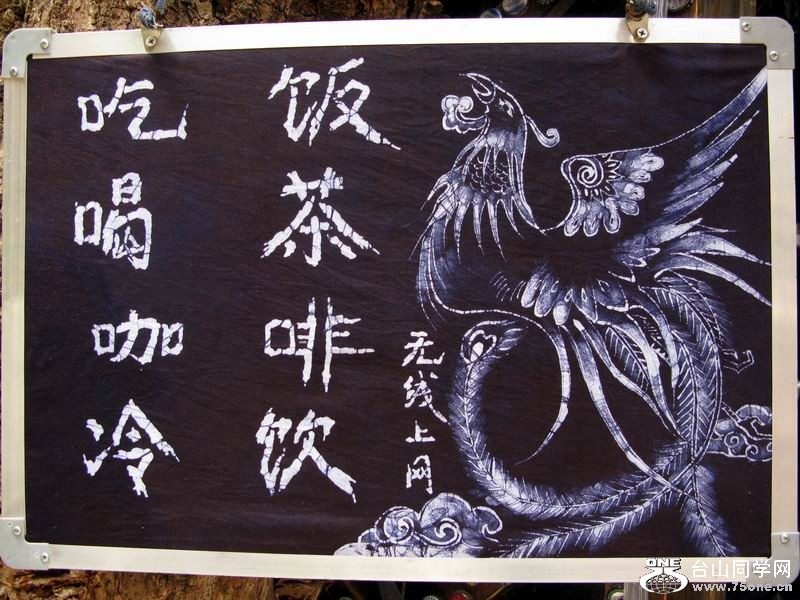 吃饭
喝茶
咖啡
冷饮
无线上网
ONE
台山同学网
www.75one.cn